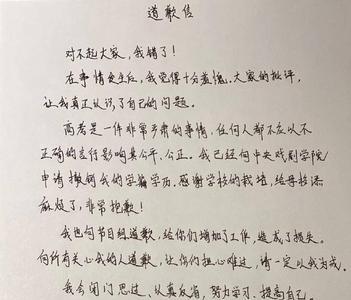 道歉信
对不起大家，我错了！
在事情发生后，我觉得十分羞愧。大家的批评，
让我真正认识了自己的问题。
高考是一件非常严肃的事情，任何人都不应以不
正确的言行影响其公平、公正。我已经向中央戏剧学院
申请撤销我的学籍学历。感谢学校的栽培，给母校添
麻烦了，非常抱歉！
我也向节目组道歉，给你们增加了工作，造成了损失。
向所有关心我的人道歉，让你们担心难过，请一定以我为戒。
我会闭门思过、认真反省，努力学习，提高自己。